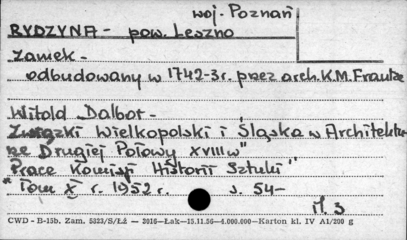 woj. Poznań
RYDZYNA - pow. Leszno
Zamek -
odbudowany w 1742-3r. przez arch. K.M. Frantze
Witold Dalbor -
Związki Wielkopolski i Śląska w Architektu-
rze Drugiej Połowy XVIII w"
Prace Komisji Historii Sztuki"
"Tom X r. 1952 r. s. 54-
M. 3
CWD - B-15b. Zam. 5323/S/Łż — 2016—Łak—15.11.56—4.000.000—Karton kl. IV A1/200 g